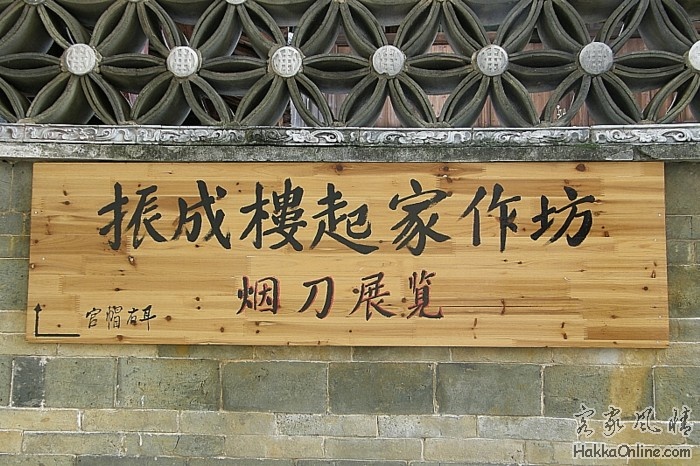 振成樓起家作坊
烟刀展览
官帽右耳
客家风情
HakkaOnline.com